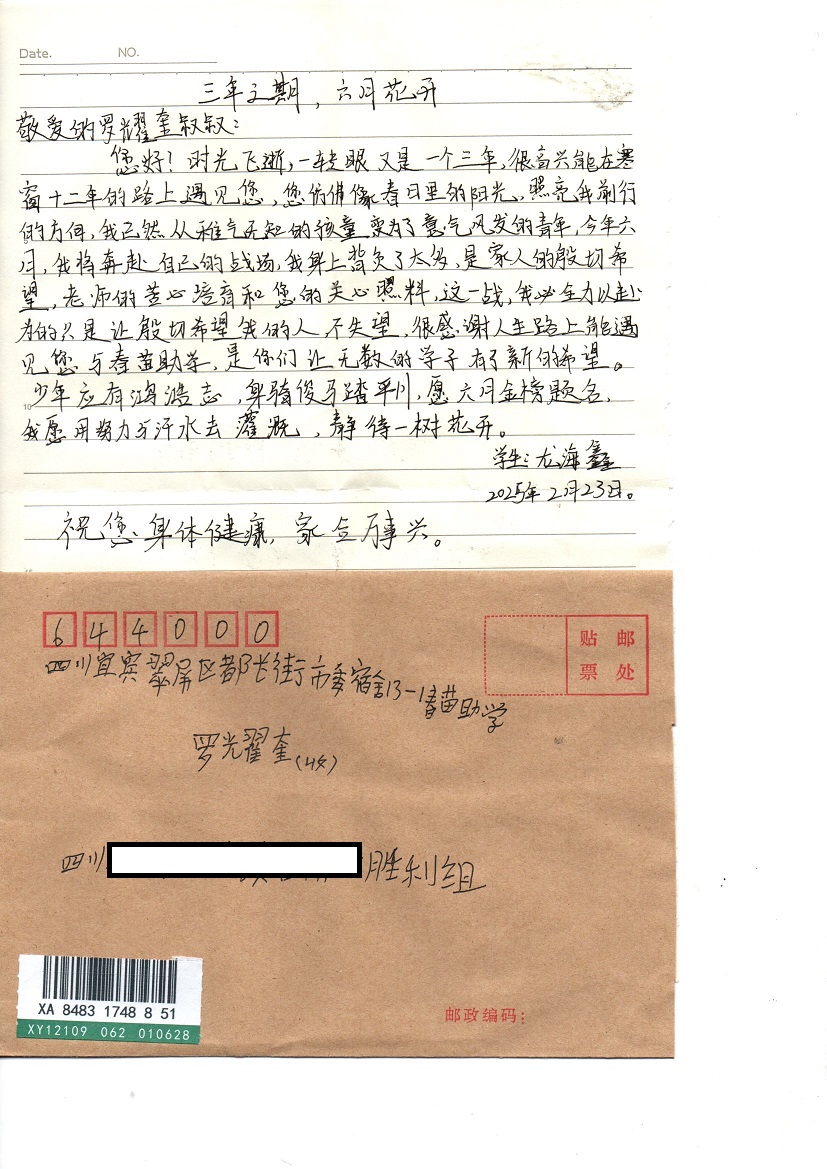 Date. NO.
三年之期，六月花开
敬爱的罗光耀奎叔叔：
您好！时光飞逝，一转眼又是一个三年，很高兴能在寒
窗十二年的路上遇见您，您仿佛像春日里的阳光，照亮我前行
的方向，我已然从稚气无知的孩童变为了意气风发的青年，今年六
月，我将奔赴自己的战场，我身上背负了太多，是家人的殷切希
望，老师的苦心培育和您的关心照料，这一战，我必全力以赴
为的只是让殷切希望我的人不失望，很感谢人生路上能遇
见您与春苗助学，是你们让无数的学子有了新的希望。
少年应有鸿浩志，身骑俊马踏平川，愿六月金榜题名，
我愿用努力与汗水去灌溉，静待一树花开。
学生：龙海鑫
2025年2月23日。
祝您身体健康，家合万事兴。
644000
贴 邮
票 处
四川宜宾翠屏区都长街市委宿舍13-1春苗助学
罗光翟奎(收)
四川 胜利组
XA 8483 1748 8 51
XY12109 062 010628
邮政编码：